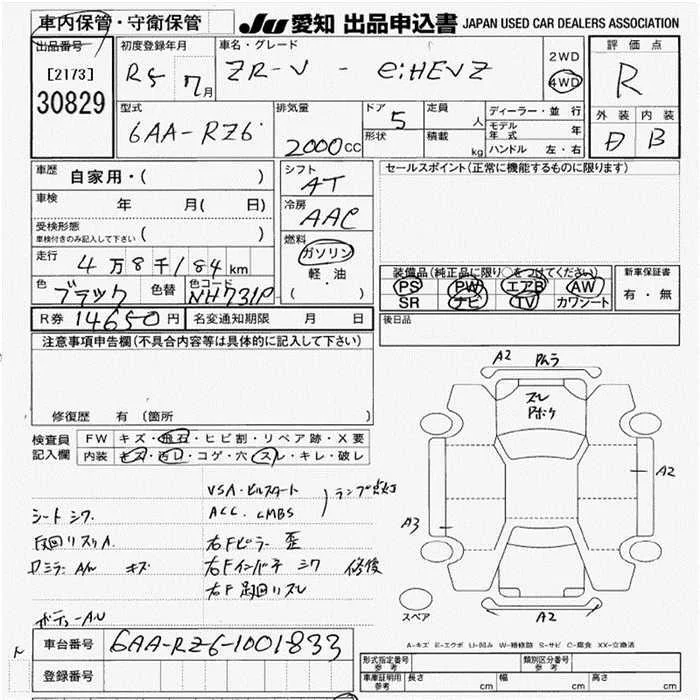 車内保管・守衛保管 JU 愛知 出品申込書 JAPAN USED CAR DEALERS ASSOCIATION
出品番号 初度登録年月 車名・グレード 2WD 評価点
[2173] R5 7月 ZR-V - e:HEVZ 4WD R
30829
型式 排気量 ドア 5 定員 人 ディーラー・並行 外装 内装
6AA-RZ6 2000CC 形状 積載 kg モデル年式 年 D B
ハンドル 左・右
車歴 自家用・( ) シフト AT セールスポイント(正常に機能するものに限ります)
車検 年 月( 日) 冷房 AAC
受検形態 車検付きのみ記入して下さい ( ) 燃料 ガソリン
走行 4万8千184km 軽・油 装備品(純正品に限り○をつけてください) 新車保証書
色 ブラック 色替 色コード NH731P ( ) PS PW エアB AW 有・無
SR ナビ TV カワシート
R券 14650円 名変通知期限 月 日 後日品
注意事項申告欄(不具合内容等は具体的に記入して下さい)
A2 PAムラ
ズレ
修復歴 有 (箇所 )
検査員記入欄 FW キズ・飛石・ヒビ割・リペア跡・X要
内装 キズ・汚レ・コゲ・穴・スレ・キレ・破レ
A2
VSA・ヒルスタート ランプ点灯
シート シワ ACC. CMBS A3
右Fピラー 歪
キズ 右Fインパネ シワ 修後
右F足回リ ズレ
スペア A2
ボディーAU
A-キズ E-エクボ U-凹み W-補修跡 S-サビ C-腐食 XX-交換済
車台番号 6AA-RZ6-1001833
型式指定番号 参考 類別区分番号 参考
登録番号 車庫証明用 参考 長さ cm 幅 cm 高さ cm